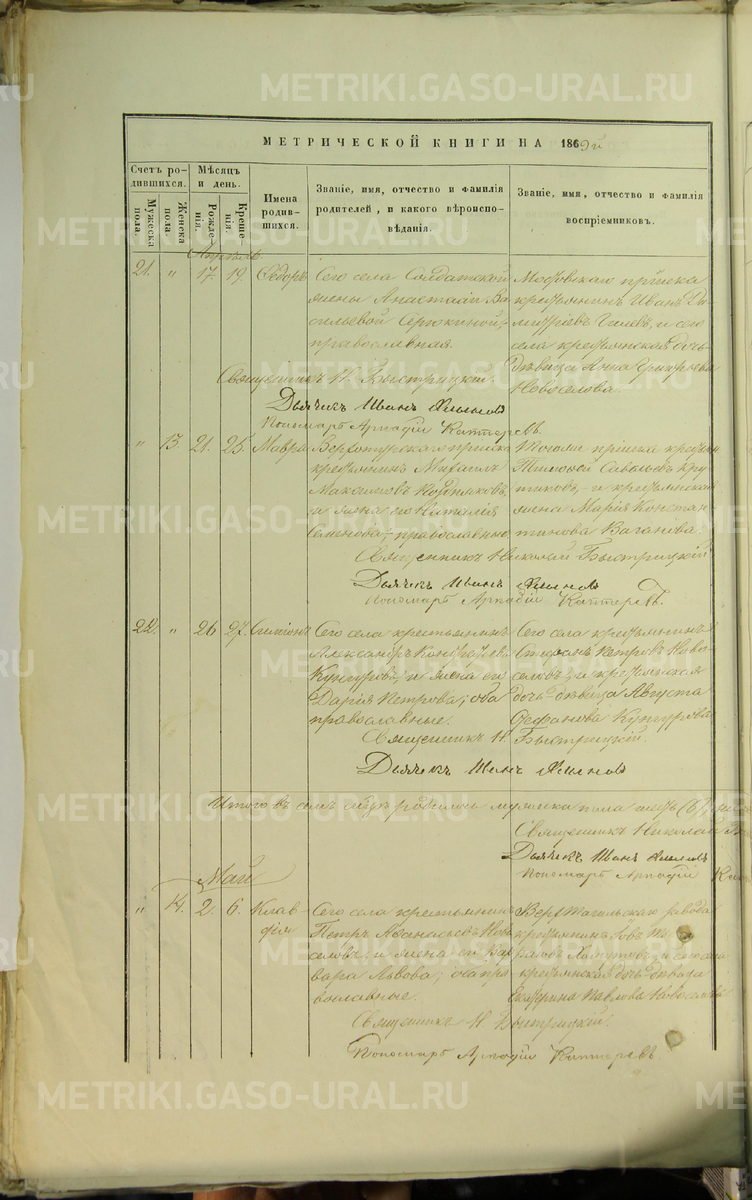 МЕТРИЧЕСКОЙ КНИГИ НА 1869й
Счетъ родившихся.
Мужеска пола.
Женска пола.
Мѣсяцъ и день.
Рожденія.
Крещенія.
Имена родившихся.
Званіе, имя, отчество и фамилія родителей, и какого вѣроисповѣданія.
Званіе, имя, отчество и фамилія воспріемниковъ.
Апрѣль
21. " 17. 19. Ѳедоръ
Сего села Солдатской
жены Анастасіи Ва
сильевой
православная.
крестьянинъ Иванъ Ди
митріевъ и сего
села крестьянская дочь
дѣвица Анна Григорьева
Новоселова.
Священникъ Н. Быстрицкій.
Дьячекъ Иванъ
Пономарь Аркадій Каптеревъ.
" 13. 21. 25. Мавра
Верхотурскаго пріиска
крестьянинъ Михаилъ
Максимовъ
и жена его Наталія
Семенова; православные
Тогожъ пріиска крестьян
Тимофей Савельевъ Кру
тиковъ, и крестьянская
жена Марія Констан
тинова Ваганова.
Священникъ Николай Быстрицкій
Дьячекъ Иванъ
Пономарь Аркадій Каптеревъ.
22. " 26 27.
Сего села крестьянинъ
Александръ
Кунгуровъ, и жена его
Дарія Петрова; оба
православные.
Сего села крестьянинъ
Стефанъ Петровъ Ново
селовъ, и крестьянская
дочь дѣвица Августа
Кунгурова
Священникъ Н. Быстрицкій.
Дьячекъ Иванъ
Итого въ семъ мѣсяцѣ родилось мужеска пола
Священникъ Николай
Дьячекъ Иванъ
Пономарь Аркадій
Май
" 14. 2. 6. Клав
дія
Сего села крестьянинъ
Петръ Аѳанасьевъ Ново
селовъ, и жена его Вар
вара Львова; оба пра
вославные.
Верх Тагильскаго завода
крестьянинъ
и сего села
крестьянская дочь дѣвица
Екатерина Павлова Новоселова
Священникъ Н. Быстрицкій.
Пономарь Аркадій Каптеревъ.
METRIKI.GASO-URAL.RU